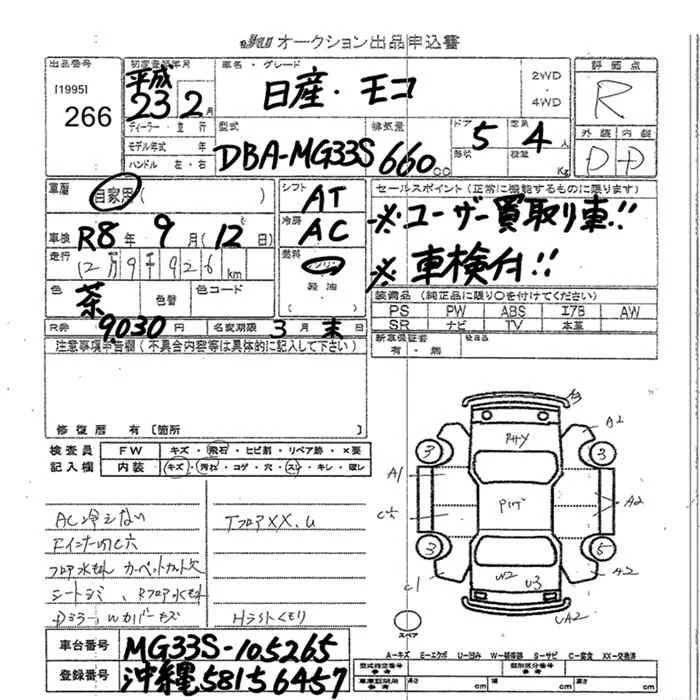 JU オークション出品申込書
出品番号 初度登録年月 車名・グレード 2WD・4WD 評価点
[1995] 266 平成 23 2月 日産・モコ R
外装 内装
D D
ディーラー・並行 型式 排気量 ドア 5 定員 4人
モデル年式 年 DBA-MG33S 660cc 形状 積載 Kg
ハンドル 左・右
車歴 自家用( ) シフト AT セールスポイント(正常に機能するものに限ります)
車検 R8年 9月(12日) 冷房 AC ※ユーザー買取り車!!
走行 12万9千926km 燃料 ガソリン 軽油 ※車検付!!
色 茶 色替 色コード 装備品(純正品に限り○を付けてください)
PS PW ABS エアB AW
SR ナビ TV 本革
R券 9,030円 名変期限 3月末日 新車保証書 有・無 後日品
注意事項申告欄(不具合内容等は具体的に記入して下さい)
修復歴 有〔箇所
検査員 FW キズ・飛石・ヒビ割・リペア跡・×要
記入欄 内装 キズ・汚れ・コゲ・穴・スレ・キレ・破レ
AC冷えない TフロアXX、U
Fインナー切欠穴
フロア水もれ カーペットカット欠
シートシミ、Rフロア水もれ
Dミラーウィンカバーキズ Hライトくもり
A2
3 3
A1 A2
3 5
C1 W2 U3 A2
UA2
スペア
A-キズ E-エクボ U-凹み W-補修跡 S-サビ C-腐食 XX-交換済
車台番号 MG33S-105265
登録番号 沖縄581う6457
型式指定番号 類別区分番号
長さ cm 幅 cm 高さ cm